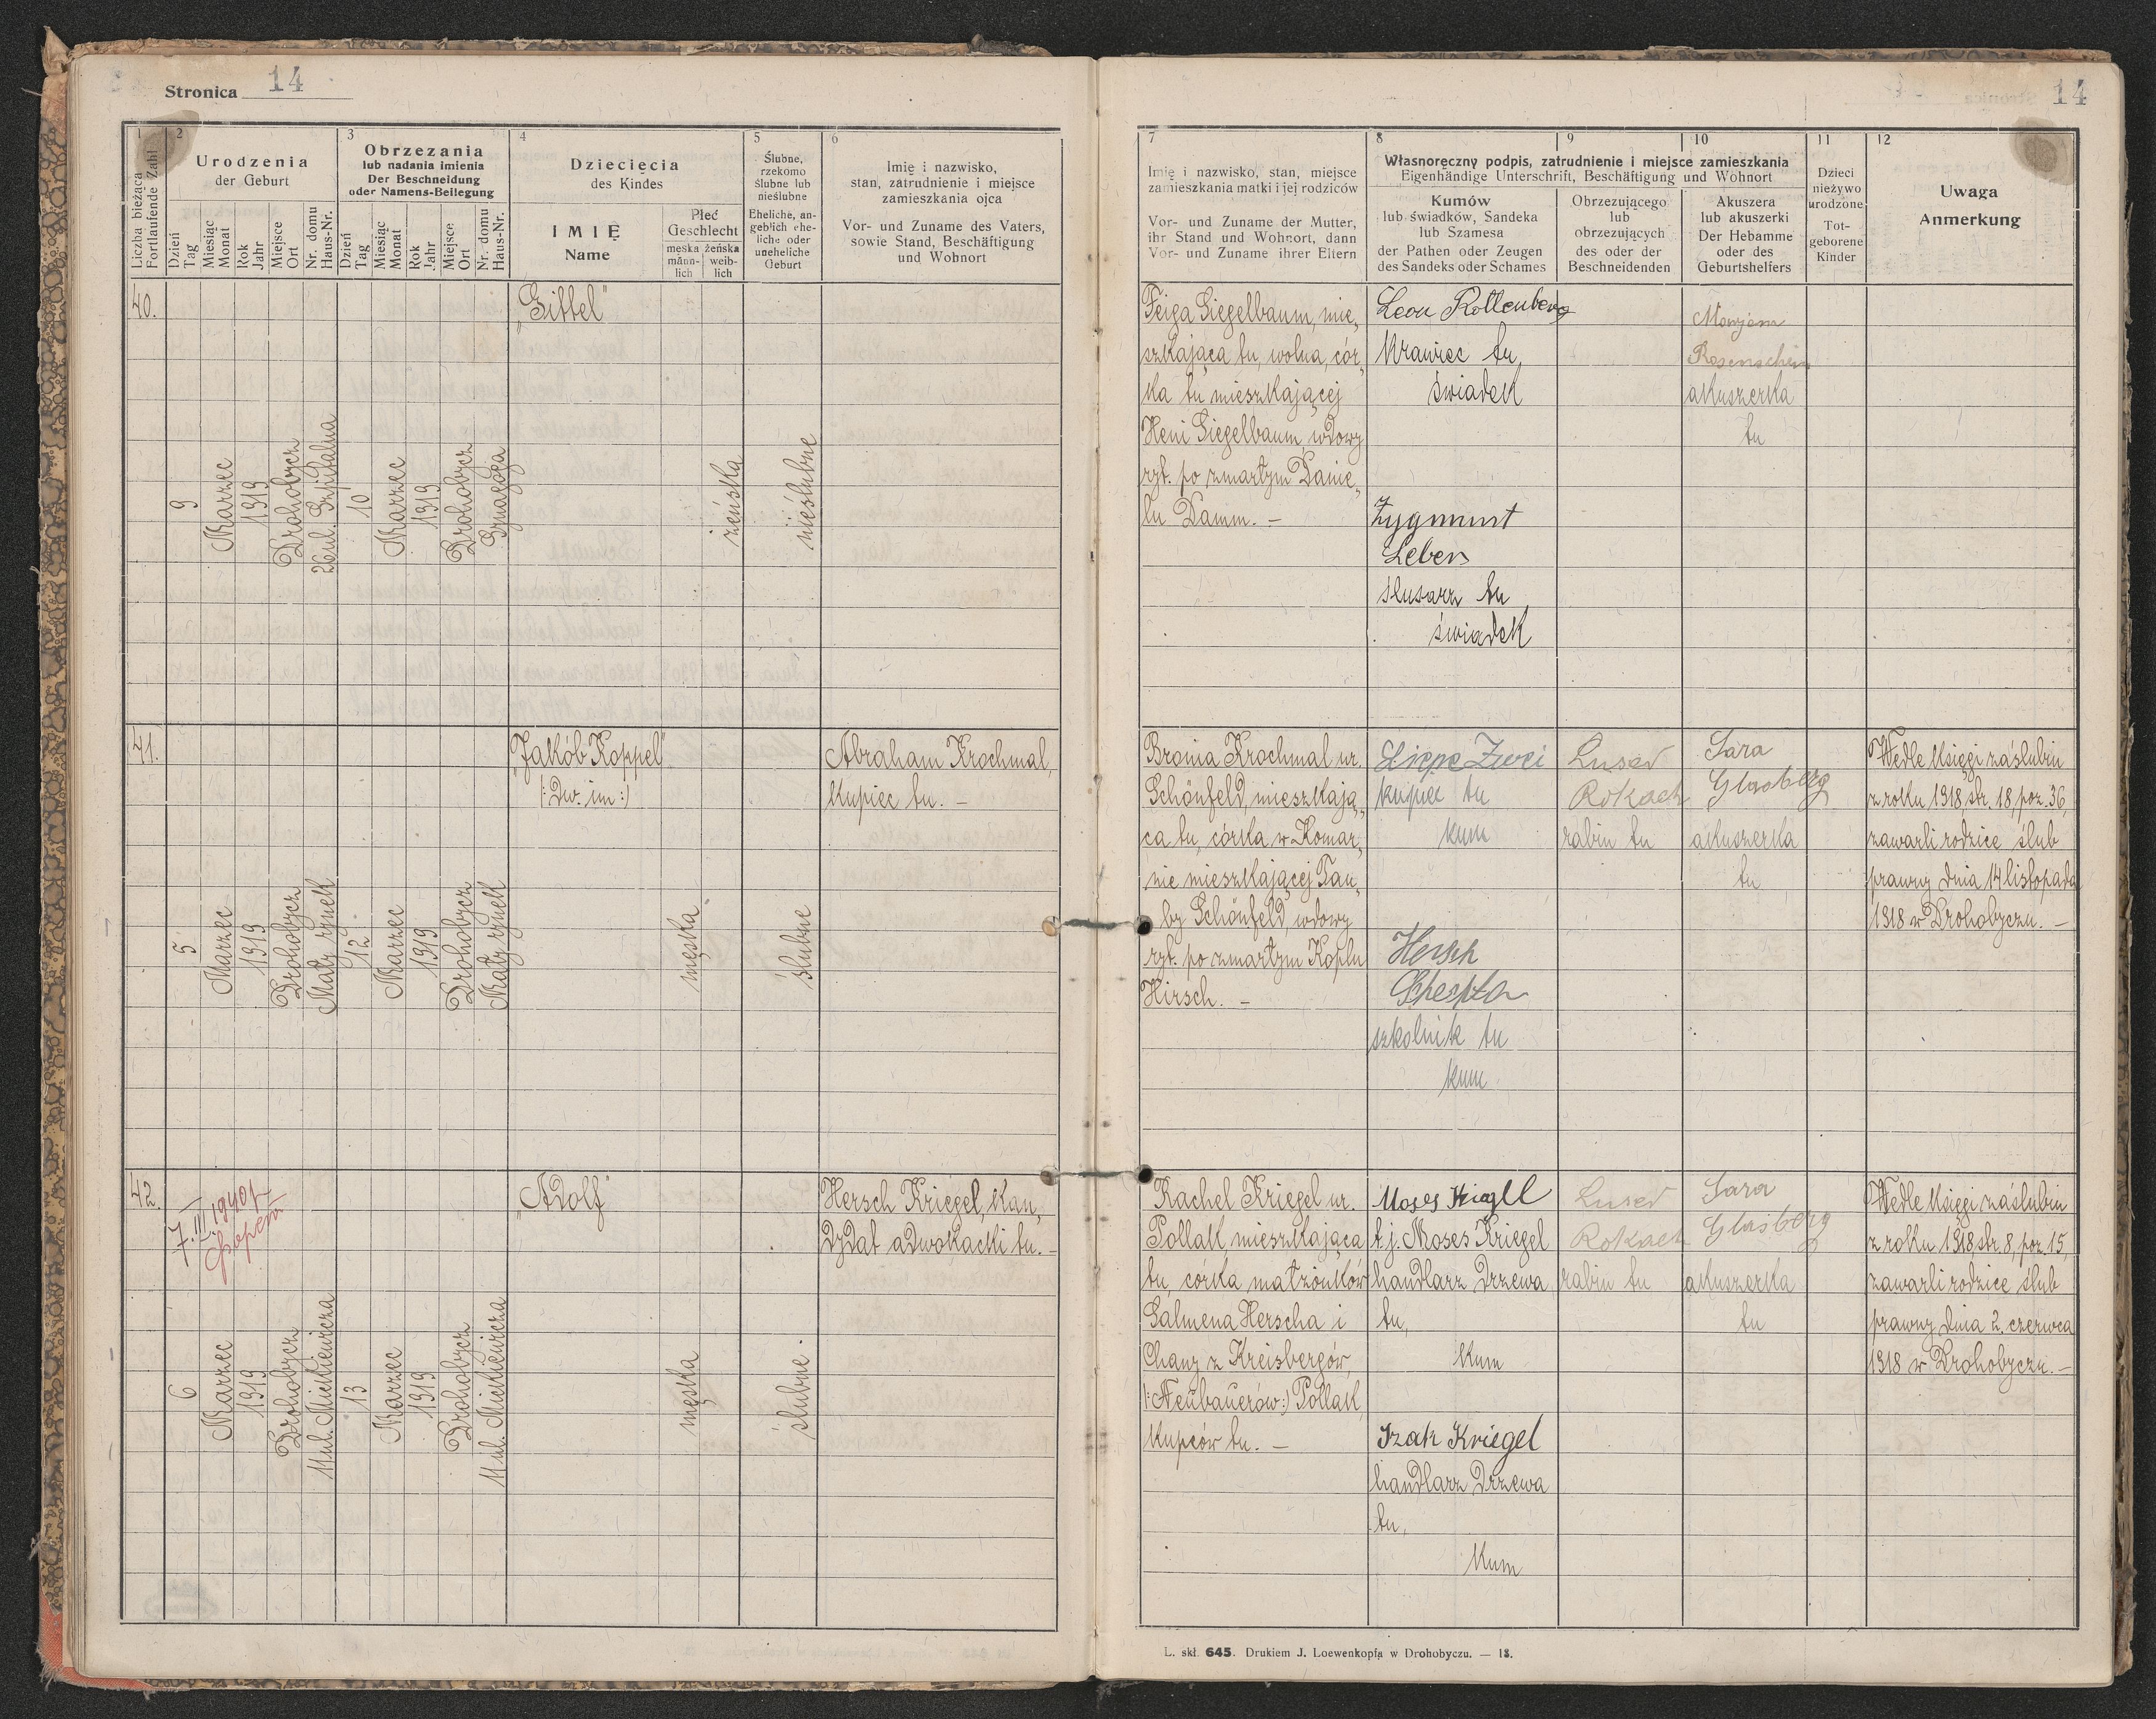 Stronica 14
14
1
2
3
4
5
6
Liczba bieżąca
Fortlaufende Zahl
Urodzenia
der Geburt
Obrzezania
lub nadania imienia
Der Beschneidung
oder Namens-Beilegung
Dziecięcia
des Kindes
Ślubne,
rzekomo
ślubne lub
nieślubne
Eheliche, an-
geblich ehe-
liche oder
uneheliche
Geburt
Imię i nazwisko,
stan, zatrudnienie i miejsce
zamieszkania ojca
Vor- und Zuname des Vaters,
sowie Stand, Beschäftigung
und Wohnort
Dzień
Tag
Miesiąc
Monat
Rok
Jahr
Miejsce
Ort
Nr. domu
Haus-Nr.
Dzień
Tag
Miesiąc
Monat
Rok
Jahr
Miejsce
Ort
Nr. domu
Haus-Nr.
IMIĘ
Name
Płeć
Geschlecht
męska
männ-
lich
żeńska
weib-
lich
7
8
9
10
11
12
Imię i nazwisko, stan, miejsce
zamieszkania matki i jej rodziców
Vor- und Zuname der Mutter,
ihr Stand und Wohnort, dann
Vor- und Zuname ihrer Eltern
Własnoręczny podpis, zatrudnienie i miejsce zamieszkania
Eigenhändige Unterschrift, Beschäftigung und Wohnort
Kumów
lub świadków, Sandeka
lub Szamesa
der Pathen oder Zeugen
des Sandeks oder Schames
Obrzezującego
lub
obrzezujących
des oder der
Beschneidenden
Akuszera
lub akuszerki
Der Hebamme
oder des
Geburtshelfers
Dzieci
nieżywo
urodzone
Tot-
geborene
Kinder
Uwaga
Anmerkung
40.
9
Marzec
1919
Drohobycz
26 ul. Szpitalna
10
Marzec
1919
Drohobycz
Synagoga
„Gittel"
żeńska
nieślubne
Feiga Siegelbaum, mie„
szkająca tu, wolna, cór„
ka tu mieszkającej
Heni Siegelbaum wdowy
ryt. po zmarłym Danie„
lu Damm. –
Leon Rottenberg
krawiec tu,
świadek
Zygmunt
Leben
ślusarz tu
świadek
Marjem
Rosenschein
akuszerka
tu
41.
5
Marzec
1919
Drohobycz
Mały rynek
12
Marzec
1919
Drohobycz
Mały rynek
„Jakób Koppel"
/: Dw. im :/
męska
ślubne
Abraham Krochmal,
kupiec tu. –
Brania Krochmal ur.
Schönfeld, mieszkają„
ca tu, córka w Komar„
nie mieszkającej Tau„
by Schönfeld, wdowy
ryt. po zmarłym Koplu
Hirsch. –
Lippe Zwei
kupiec tu
kum
Hersch
szkolnik tu
kum
Luser
Rokach
rabin tu
Sara
Glasberg
akuszerka
tu
Wedle księgi zaślubin
z roku 1918, str. 18, poz. 36,
zawarli rodzice ślub
prawny dnia 14 listopada
1918 w Drohobyczu. –
42.
7.III.1940r.
6
Marzec
1919
Drohobycz
11 ul. Mickiewicza
13
Marzec
1919
Drohobycz
11 ul. Mickiewicza
„Adolf"
męska
ślubne
Hersch Kriegel, kan„
dydat adwokacki tu. –
Rachel Kriegel ur.
Pollak, mieszkająca
tu, córka małżonków
Salmena Herscha i
Chany z Kreisbergów,
/: Neubauerów :/ Pollak,
kupców tu. –
Moses Kriegel
t.j. Moses Kriegel
handlarz drzewa
tu,
kum
Izak Kriegel
handlarz drzewa
tu,
kum
Luser
Rokach
rabin tu
Sara
Glasberg
akuszerka
tu
Wedle księgi zaślubin
z roku 1918, str. 8, poz. 15,
zawarli rodzice ślub
prawny dnia 2. czerwca
1918 w Drohobyczu. –
L. skł. 645. Drukiem J. Loewenkopfa w Drohobyczu. — 18.